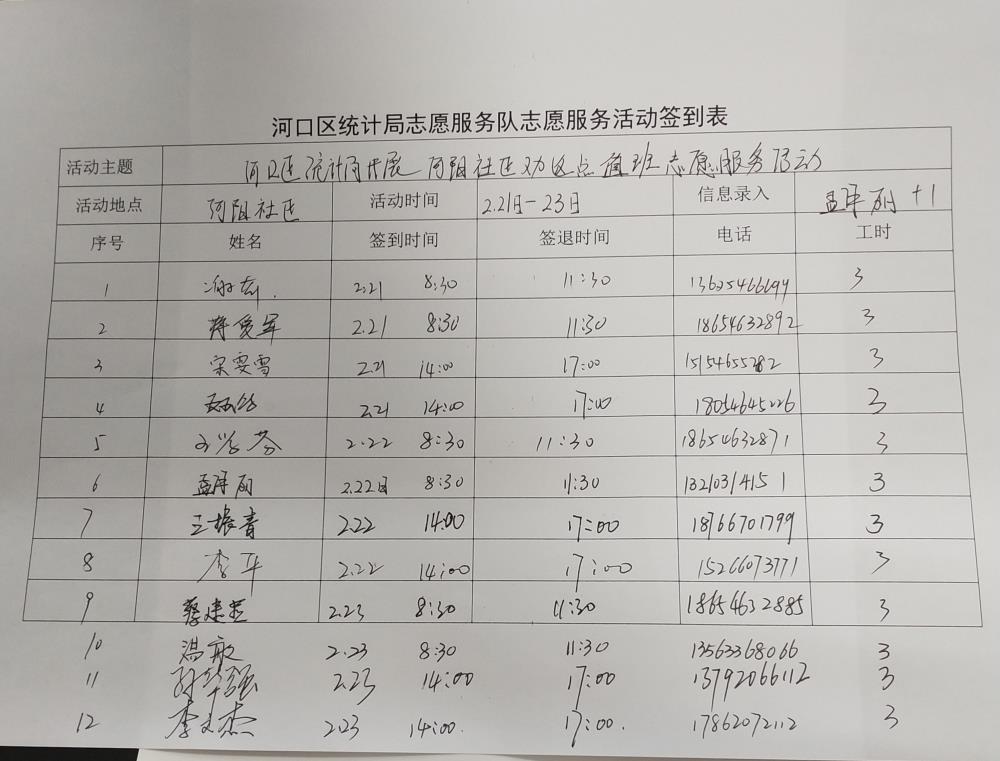 河口区统计局志愿服务队志愿服务活动签到表
活动主题 河口区统计局开展河阳社区劝返点值班志愿服务活动
活动地点 河阳社区 活动时间 2.21日-23日 信息录入 孟萍丽 +1
序号 姓名 签到时间 签退时间 电话 工时
1 2.21 8:30 11:30 13625466694 3
2 蒋俊军 2.21 8:30 11:30 18654632892 3
3 宋雯雪 2.21 14:00 17:00 15154655282 3
4 2.21 14:00 17:00 18054645226 3
5 2.22 8:30 11:30 18654632871 3
6 孟萍丽 2.22日 8:30 11:30 13210314151 3
7 王振青 2.22 14:00 17:00 18766701799 3
8 李平 2.22 14:00 17:00 15266073771 3
9 蔡建芝 2.23 8:30 11:30 18654632885 3
10 温敏 2.23 8:30 11:30 13563368066 3
11 孙华强 2.23 14:00 17:00 13792066112 3
12 李文杰 2.23 14:00. 17:00. 17862072112 3